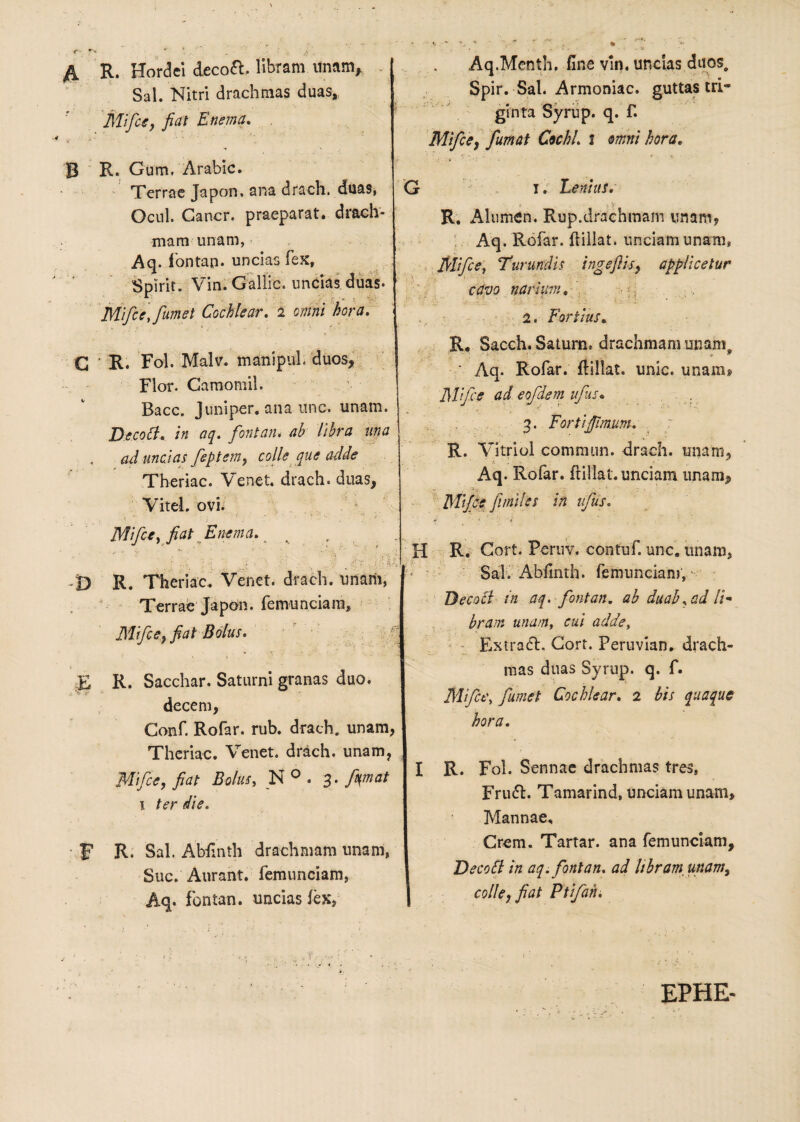 A R. Hordei decoct. libram unam,
Sal. Nitri drachmas duas,
Miſce, fiat Enema.
B R. Gum. Arabic.
Terrae Japon. ana drach. duas,
Ocul. Cancr. praeparat. drach-
mam unam,
Aq. fontan. uncias ſex,
Spirit. Vin. Gallic. uncias duas.
Miſce, ſumet Cochlear. 2 omni hora.
C R. Fol. Malv. manipul. duos,
Flor. Camomil.
Bacc. Juniper. ana unc. unam.
Decoct. in aq. fontan. ab libra una
ad uncias ſeptem, colle que adde
Theriac. Venet. drach. duas,
Vitel. ovi.
Miſce, fiat Enema.
D R. Theriac. Venet. drach. unam,
Terrae Japon. ſemunciam,
Miſce, fiat Bolus.
E R. Sacchar. Saturni granas duo.
decem,
Conſ. Roſar. rub. drach. unam,
Theriac. Venet. drach. unam,
Miſce, fiat Bolus, N°. 3. ſumat
1 ter die.
F R. Sal. Abſinth drachmam unam,
Suc. Aurant. ſemunciam,
Aq. fontan. uncias ſex,
Aq. Menth. ſine vin. uncias duos.
Spir. Sal. Armoniac. guttas tri-
ginta Syrup. q. ſ.
Miſce, ſumat Cochl. 1 omni hora.
G 1. Lenius.
R. Alumen. Rup. drachmam unam,
Aq. Roſar. ſtillat. unciam unam,
Miſce, Turundis ingeſtis, applicetur
cavo narium.
2. Fortius.
R. Sacch. Saturn. drachmam unam,
Aq. Roſar. ſtillat. unic. unam,
Miſce ad eoſdem uſus.
3. Fortiſſimum.
R. Vitriol commun. drach. unam,
Aq. Roſar. ſtillat. unciam unam,
Miſce ſimiles in uſus.
H R. Cort. Peruv. contuſ. unc. unam,
Sal. Abſinth. ſemunciam,
Decoct in aq. fontan. ab duab. ad li-
bram unam, cui adde,
Extract. Cort. Peruvian. drach-
mas duas Syrup. q. ſ.
Miſce, ſumet Cochlear. 2 bis quaque
hora.
I R. Fol. Sennae drachmas tres,
Fruct. Tamarind. unciam unam,
Mannae,
Crem. Tartar. ana ſemunciam,
Decoct in aq. fontan. ad libram unam,
colle, fiat Ptiſan.
EPHE-